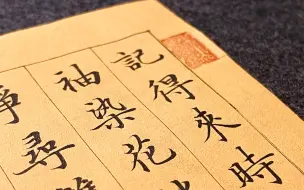 記得來時
袖染花
尋